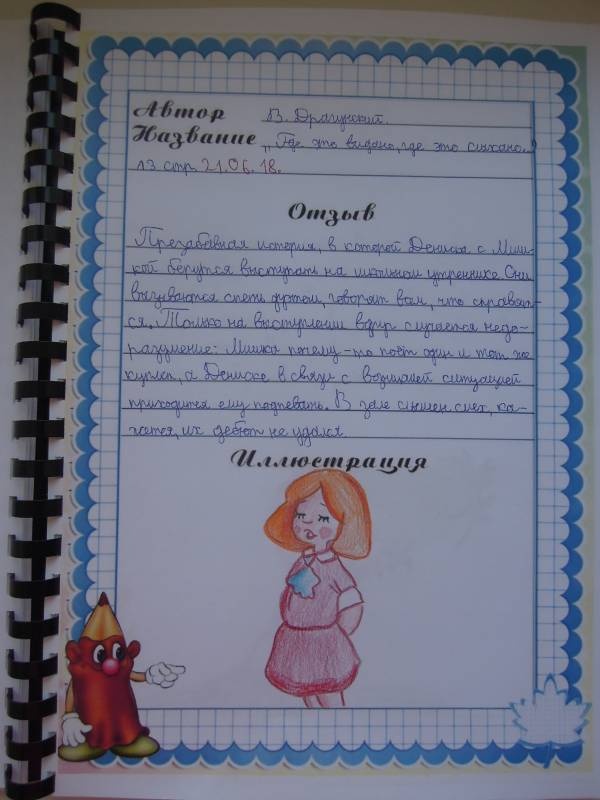 Автор В. Драгунский
Название „Где это видано, где это слыхано."
13 стр. 21.06.18.
Отзыв
Презабавная история, в которой Дениска с Миш-
кой берутся выступать на школьном утреннике. Они
вызываются спеть дуэтом, говорят всем, что справят-
ся. Только на выступлении вдруг случается недо-
разумение: Мишка почему-то поёт один и тот же
куплет, а Дениске в связи с возникшей ситуацией
приходится ему подпевать. В зале слышен смех, ка-
жется, их дебют не удался.
Иллюстрация